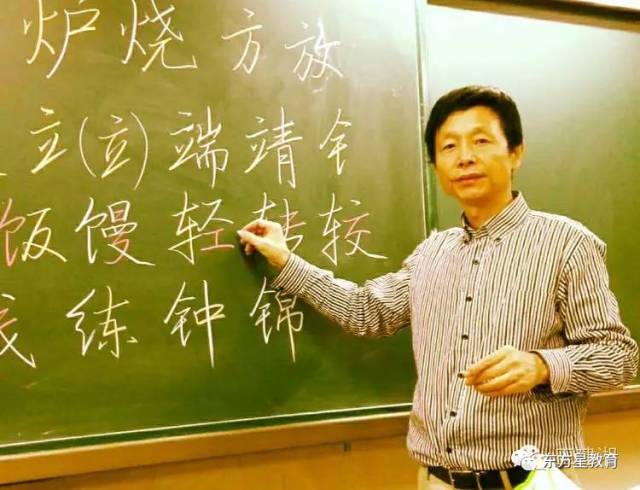 炉烧方放
立(立)端靖钅
饭馒轻转较
线练钟锦
东方星教育